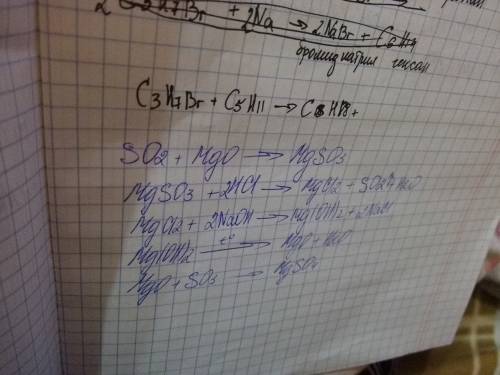 2 C3H7Br + 2Na → 2NaBr + C6H14
бромид натрия гексан
C3H7Br + C5H11 → C8H18+
SO2 + MgO → MgSO3
MgSO3 + 2HCl → MgCl2 + SO2 + H2O
MgCl2 + 2NaOH → Mg(OH)2 + 2NaCl
Mg(OH)2 t° → MgO + H2O
MgO + SO3 → MgSO4